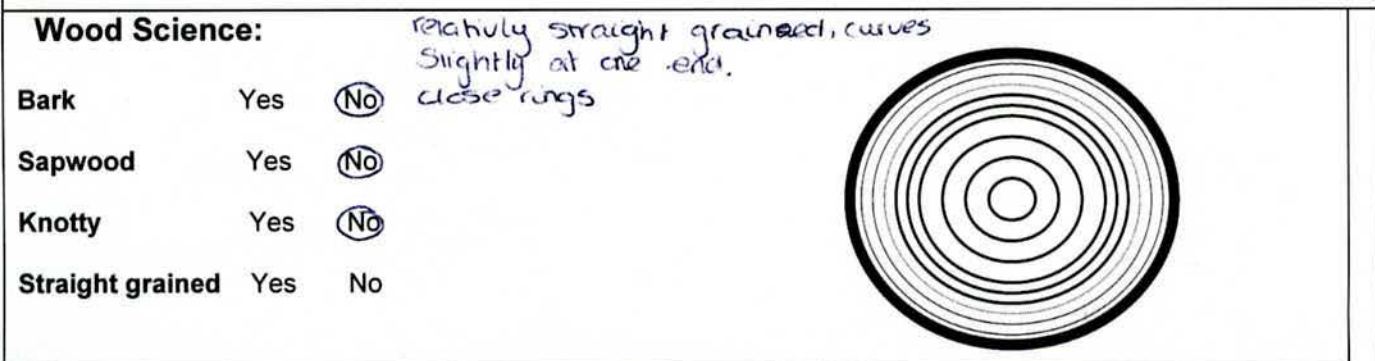 Wood Science:
relativly straight grained, curves
slightly at one end.
Bark Yes No close rings
Sapwood Yes No
Knotty Yes No
Straight grained Yes No